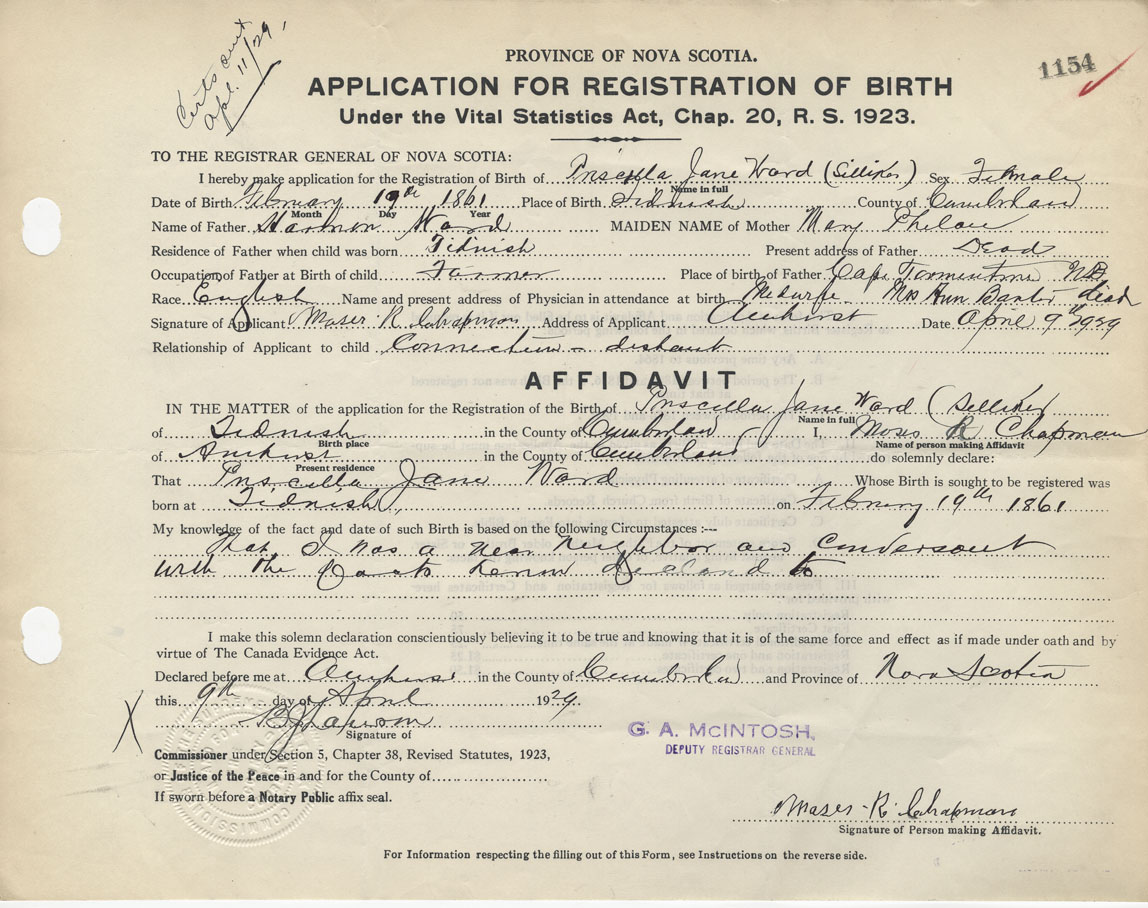 Certs sent
Apl. 11/29
1154
PROVINCE OF NOVA SCOTIA.
APPLICATION FOR REGISTRATION OF BIRTH
Under the Vital Statistics Act, Chap. 20, R. S. 1923.
TO THE REGISTRAR GENERAL OF NOVA SCOTIA:
I hereby make application for the Registration of Birth of Priscilla Jane Ward (Silliker) Sex Female
Name in full
Date of Birth February 19th 1861 Place of Birth Tidnish County of Cumberland
Month Day Year
Name of Father Harmon Ward MAIDEN NAME of Mother Mary Phelan
Residence of Father when child was born Tidnish Present address of Father Dead
Occupation of Father at Birth of child Farmer Place of birth of Father Cape Tormentine NB
Race English Name and present address of Physician in attendance at birth Midwife Mrs Ann Baxter dead
Signature of Applicant Moses R Chapman Address of Applicant Amherst Date April 9th 1929
Relationship of Applicant to child Connection - distant
AFFIDAVIT
IN THE MATTER of the application for the Registration of the Birth of Priscilla Jane Ward (Silliker
Name in full
of Tidnish in the County of Cumberland I, Moses R Chapman
Birth place Name of person making Affidavit
of Amherst in the County of Cumberland do solemnly declare:
Present residence
That Priscilla Jane Ward Whose Birth is sought to be registered was
born at Tidnish on February 19th 1861
My knowledge of the fact and date of such Birth is based on the following Circumstances :—
That I was a near Neighbor and Conversant
with the Facts to
I make this solemn declaration conscientiously believing it to be true and knowing that it is of the same force and effect as if made under oath and by
virtue of The Canada Evidence Act.
Declared before me at Amherst in the County of Cumberland and Province of Nova Scotia
this 9th day of April 1929.
Signature of
Commissioner under Section 5, Chapter 38, Revised Statutes, 1923,
or Justice of the Peace in and for the County of
If sworn before a Notary Public affix seal.
G. A. McINTOSH,
DEPUTY REGISTRAR GENERAL
Moses R Chapman
Signature of Person making Affidavit.
For Information respecting the filling out of this Form, see Instructions on the reverse side.